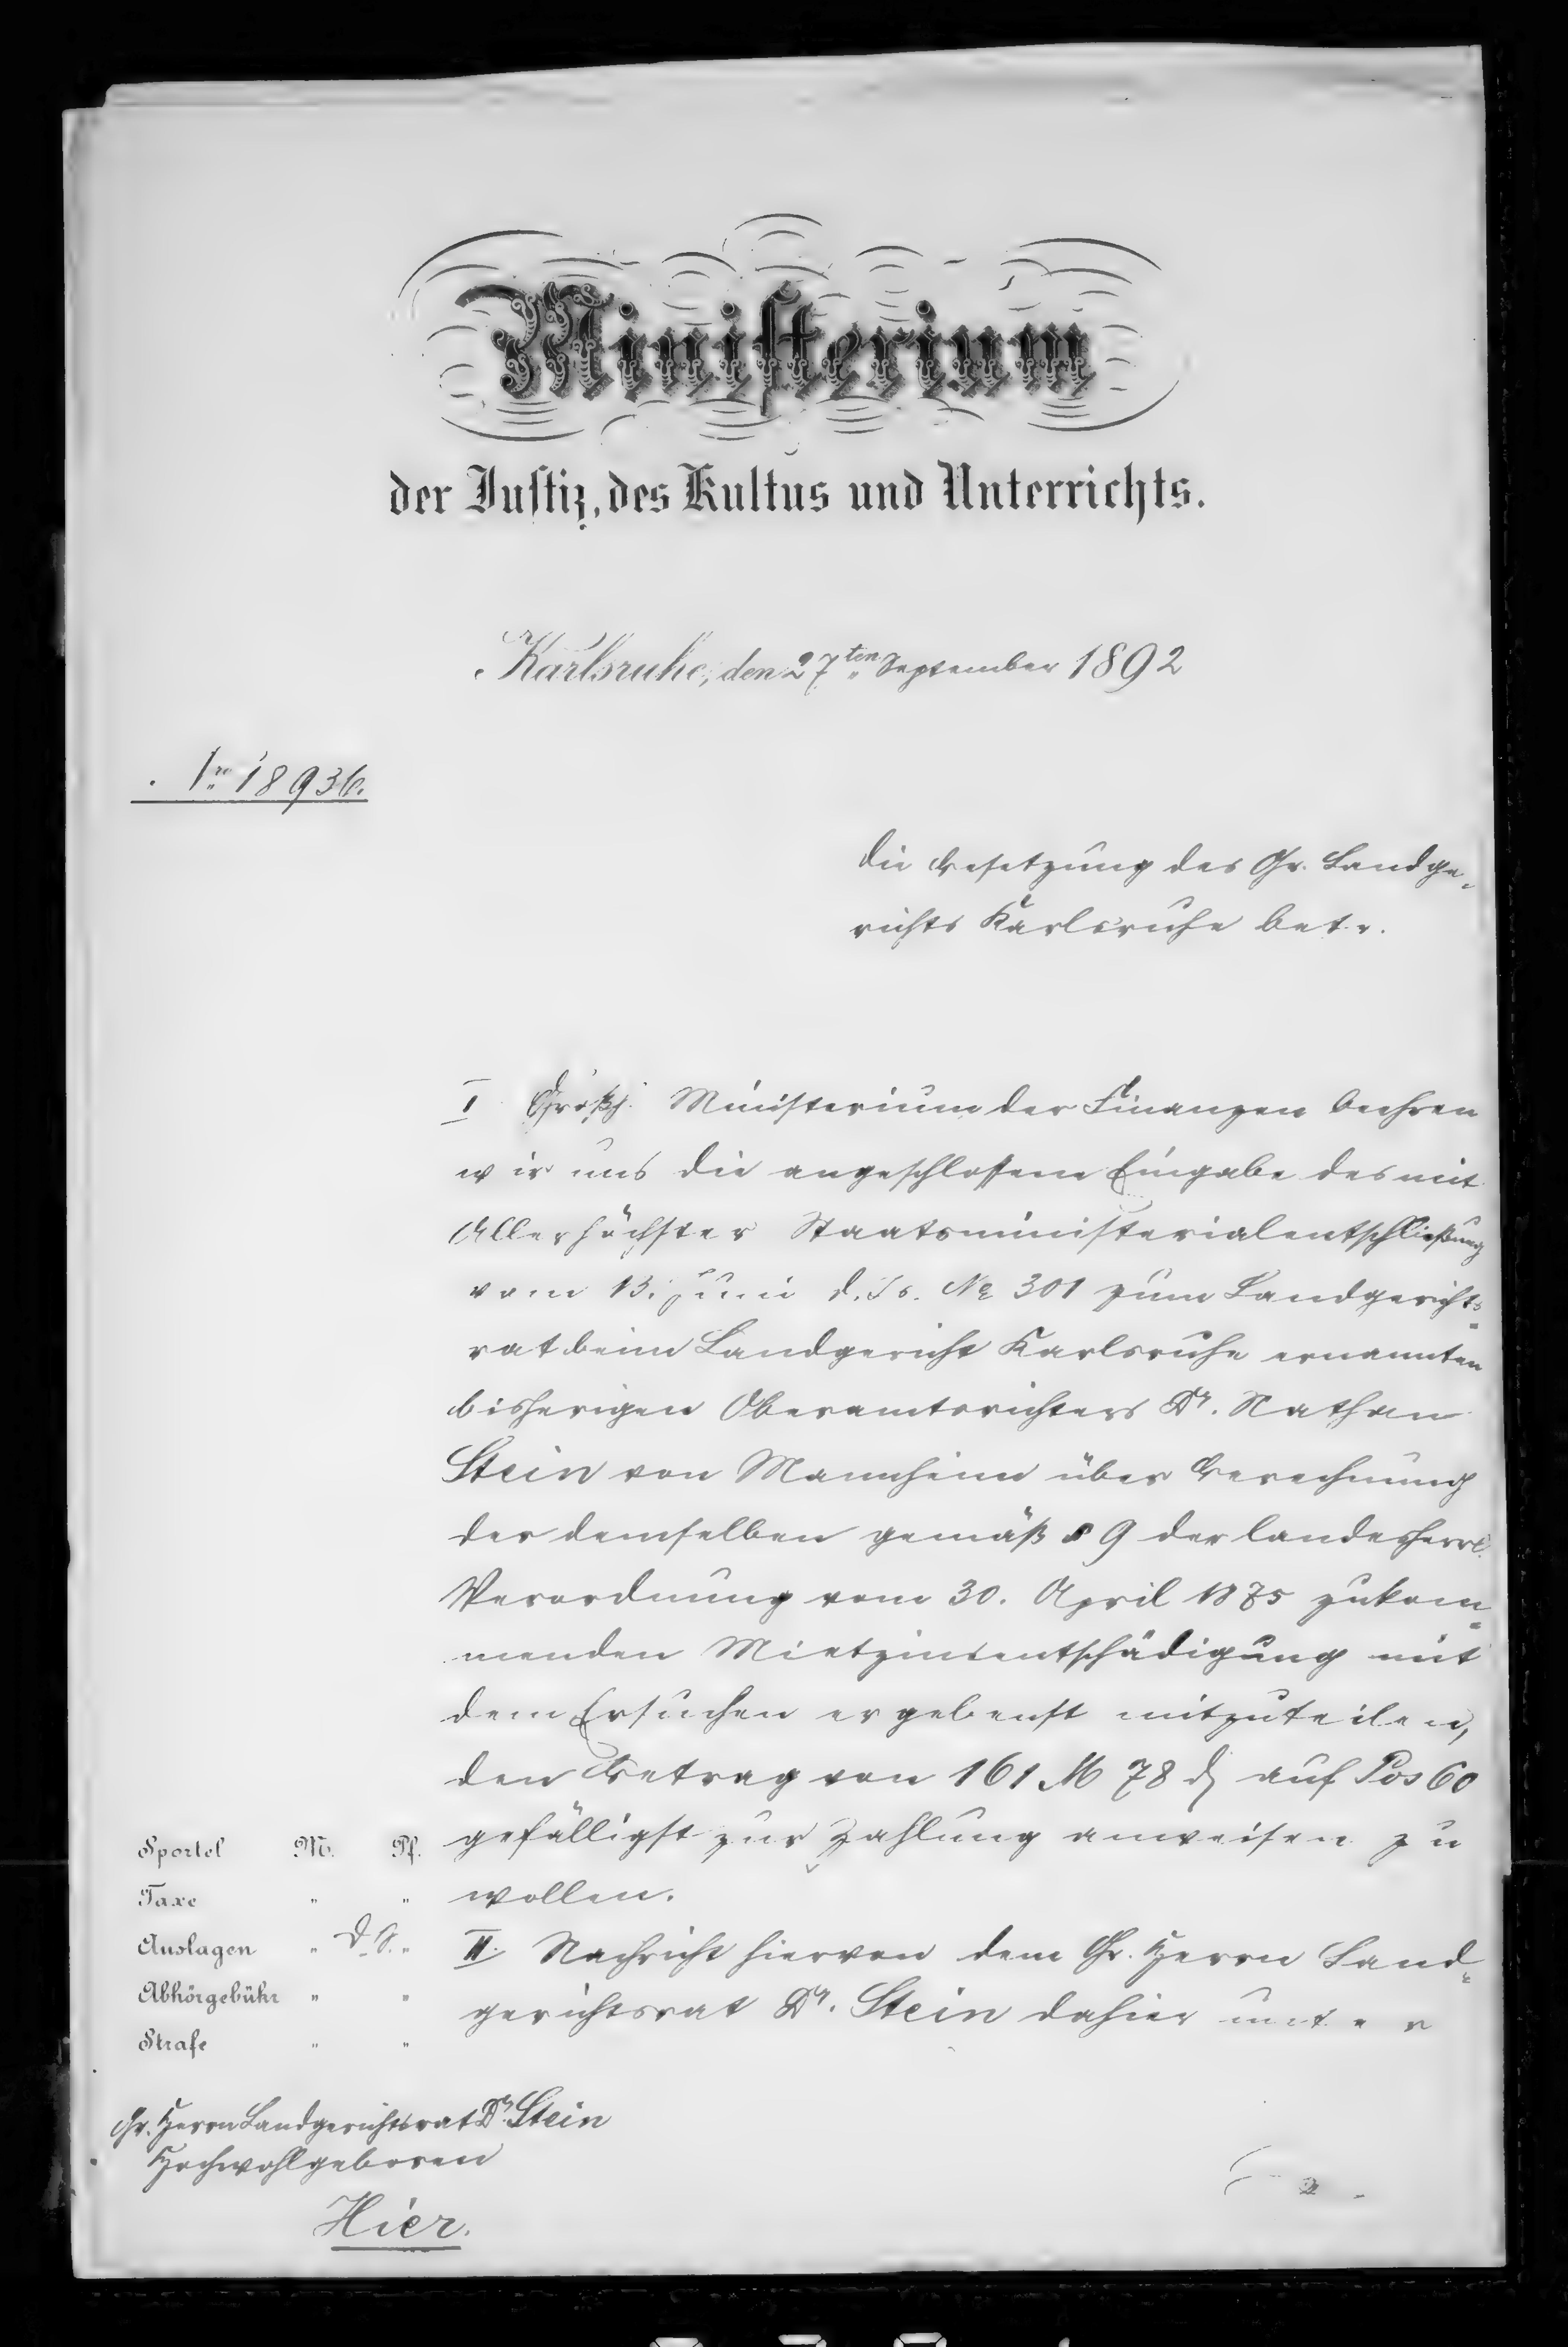 Ministerium
der Justiz, des Kultus und Unterrichts.
Karlsruhe, den 27ten September 1892
Nro 18936.
Die Besetzung des Gr. Landge-
richts Karlsruhe betr.
I Großh. Ministerium der Finanzen beehren
wir uns die angeschlossene Eingabe des mit
Allerhöchster Staatsministerialentschließung
vom 13. Juni d. Js. No 301 zum Landgerichts-
rat beim Landgericht Karlsruhe ernannten
bisherigen Oberamtsrichters Dr. Nathan
Stein von Mannheim über Berechnung
der demselben gemäß § 9 der landesherrl.
Verordnung vom 30. April 1875 zukom-
menden Mietzinsentschädigung mit
dem Ersuchen ergebenst mitzuteilen,
den Betrag von 161 M 78 ₰ auf Pos 60
gefälligst zur Zahlung anweisen zu
wollen.
II. Nachricht hiervon dem Gr. Herrn Land-
gerichtsrat Dr. Stein dahier unter
Sportel M. Pf.
Taxe " "
Auslagen " D. S. "
Abhörgebühr " "
Strafe " "
Gr. Herrn Landgerichtsrat Dr. Stein
Hochwohlgeboren
Hier.